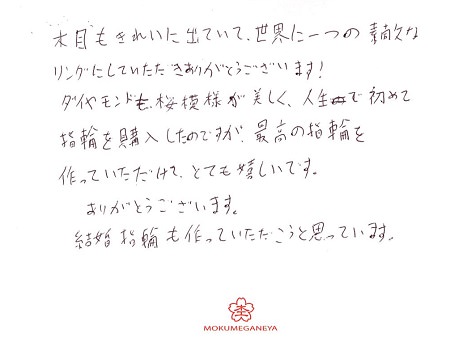 木目もきれいに出ていて、世界に一つの素敵な
リングにしていただきありがとうございます!
ダイヤモンドも、桜模様が美しく、人生で初めて
指輪を購入したのですが、最高の指輪を
作っていただけて、とても嬉しいです。
ありがとうございます。
結婚指輪も作っていただこうと思っています。
MOKUMEGANEYA